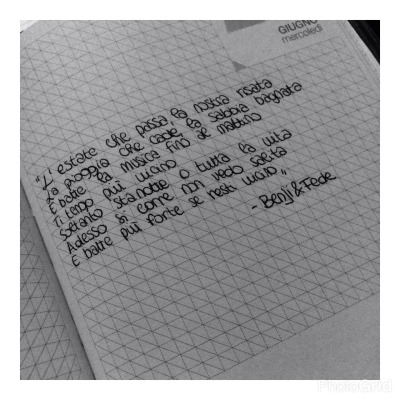 GIUGNO
mercoledì
"L'estate che passa, la nostra risata
La pioggia che cade, la sabbia bagnata
E batte la musica fino al mattino
Ti tengo più vicino
soltanto stanotte o tutta la vita
Adesso sì come non vedo
E batte più forte se resti vicino"
- Benji & Fede
PhotoGrid